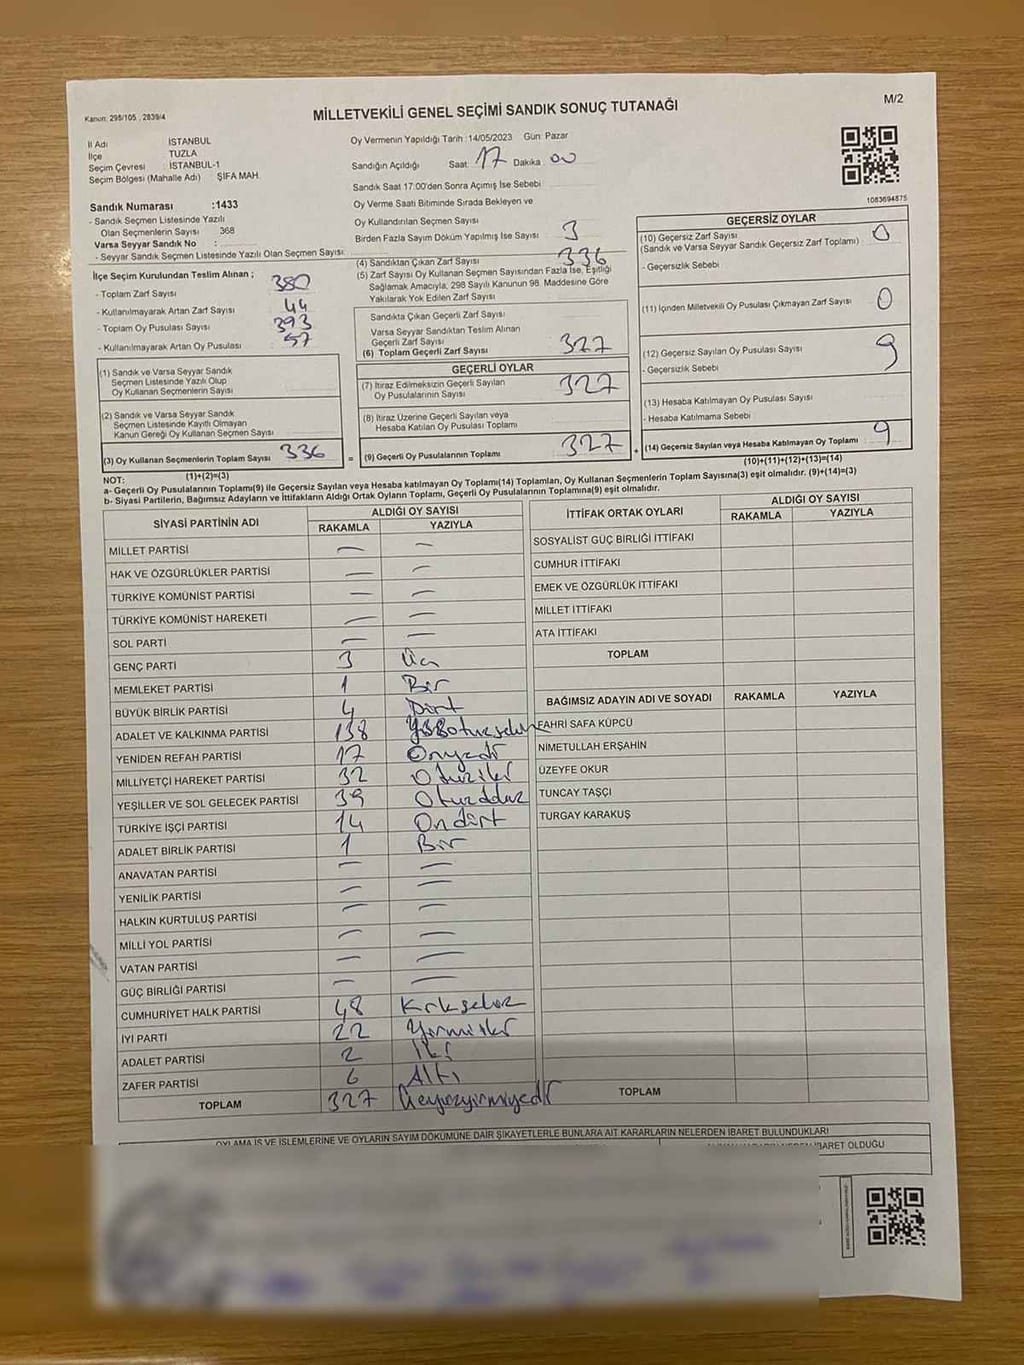 Kanun: 298/105 , 2839/4
MİLLETVEKİLİ GENEL SEÇİMİ SANDIK SONUÇ TUTANAĞI
M/2
İl Adı İSTANBUL
İlçe TUZLA
Seçim Çevresi : İSTANBUL-1
Seçim Bölgesi (Mahalle Adı) ŞİFA MAH.
Sandık Numarası :1433
- Sandık Seçmen Listesinde Yazılı
Olan Seçmenlerin Sayısı 368
Varsa Seyyar Sandık No :
- Seyyar Sandık Seçmen Listesinde Yazılı Olan Seçmen Sayısı:
Oy Vermenin Yapıldığı Tarih :14/05/2023 Gün: Pazar
Sandığın Açıldığı Saat 17 Dakika 00
Sandık Saat 17:00'den Sonra Açımış İse Sebebi
Oy Verme Saati Bitiminde Sırada Bekleyen ve
Oy Kullandırılan Seçmen Sayısı
Birden Fazla Sayım Döküm Yapılmış İse Sayısı 3
1083694875
İlçe Seçim Kurulundan Teslim Alınan ;
- Toplam Zarf Sayısı 380
- Kullanılmayarak Artan Zarf Sayısı 44
- Toplam Oy Pusulası Sayısı 393
- Kullanılmayarak Artan Oy Pusulası 57
(1) Sandık ve Varsa Seyyar Sandık
Seçmen Listesinde Yazılı Olup
Oy Kullanan Seçmenlerin Sayısı
(2) Sandık ve Varsa Seyyar Sandık
Seçmen Listesinde Kayıtlı Olmayan
Kanun Gereği Oy Kullanan Seçmen Sayısı
(3) Oy Kullanan Seçmenlerin Toplam Sayısı 336
(1)+(2)=(3)
(4) Sandıktan Çıkan Zarf Sayısı 336
(5) Zarf Sayısı Oy Kullanan Seçmen Sayısından Fazla İse, Eşitliği
Sağlamak Amacıyla, 298 Sayılı Kanunun 98. Maddesine Göre
Yakılarak Yok Edilen Zarf Sayısı
Sandıkta Çıkan Geçerli Zarf Sayısı
Varsa Seyyar Sandıktan Teslim Alınan
Geçerli Zarf Sayısı
(6) Toplam Geçerli Zarf Sayısı 327
GEÇERLİ OYLAR
(7) İtiraz Edilmeksizin Geçerli Sayılan
Oy Pusulalarının Sayısı 327
(8) İtiraz Üzerine Geçerli Sayılan veya
Hesaba Katılan Oy Pusulası Toplamı
= (9) Geçerli Oy Pusulalarının Toplamı 327
GEÇERSİZ OYLAR
(10) Geçersiz Zarf Sayısı 0
(Sandık ve Varsa Seyyar Sandık Geçersiz Zarf Toplamı)
- Geçersizlik Sebebi
(11) İçinden Milletvekili Oy Pusulası Çıkmayan Zarf Sayısı 0
(12) Geçersiz Sayılan Oy Pusulası Sayısı 9
- Geçersizlik Sebebi
(13) Hesaba Katılmayan Oy Pusulası Sayısı
- Hesaba Katılmama Sebebi
+ (14) Geçersiz Sayılan veya Hesaba Katılmayan Oy Toplamı 9
(10)+(11)+(12)+(13)=(14)
NOT:
a- Geçerli Oy Pusulalarının Toplamı(9) ile Geçersiz Sayılan veya Hesaba katılmayan Oy Toplamı(14) Toplamları, Oy Kullanan Seçmenlerin Toplam Sayısına(3) eşit olmalıdır. (9)+(14)=(3)
b- Siyasi Partilerin, Bağımsız Adayların ve İttifakların Aldığı Ortak Oyların Toplamı, Geçerli Oy Pusulalarının Toplamına(9) eşit olmalıdır.
SİYASİ PARTİNİN ADI ALDIĞI OY SAYISI
RAKAMLA YAZIYLA
MİLLET PARTİSİ — —
HAK VE ÖZGÜRLÜKLER PARTİSİ — —
TÜRKİYE KOMÜNİST PARTİSİ — —
TÜRKİYE KOMÜNİST HAREKETİ — —
SOL PARTİ — —
GENÇ PARTİ 3 Üç
MEMLEKET PARTİSİ 1 Bir
BÜYÜK BİRLİK PARTİSİ 4 Dört
ADALET VE KALKINMA PARTİSİ 138
YENİDEN REFAH PARTİSİ 17 Onyedi
MİLLİYETÇİ HAREKET PARTİSİ 32 Otuziki
YEŞİLLER VE SOL GELECEK PARTİSİ 39 Otuzdokuz
TÜRKİYE İŞÇİ PARTİSİ 14 Ondört
ADALET BİRLİK PARTİSİ 1 Bir
ANAVATAN PARTİSİ — —
YENİLİK PARTİSİ — —
HALKIN KURTULUŞ PARTİSİ — —
MİLLİ YOL PARTİSİ — —
VATAN PARTİSİ — —
GÜÇ BİRLİĞİ PARTİSİ — —
CUMHURİYET HALK PARTİSİ 48 Kırksekiz
İYİ PARTİ 22 Yirmiiki
ADALET PARTİSİ 2 İki
ZAFER PARTİSİ 6 Altı
TOPLAM 327 Üçyüzyirmiyedi
İTTİFAK ORTAK OYLARI ALDIĞI OY SAYISI
RAKAMLA YAZIYLA
SOSYALİST GÜÇ BİRLİĞİ İTTİFAKI
CUMHUR İTTİFAKI
EMEK VE ÖZGÜRLÜK İTTİFAKI
MİLLET İTTİFAKI
ATA İTTİFAKI
TOPLAM
BAĞIMSIZ ADAYIN ADI VE SOYADI RAKAMLA YAZIYLA
FAHRİ SAFA KÜPCÜ
NİMETULLAH ERŞAHİN
ÜZEYFE OKUR
TUNCAY TAŞÇI
TURGAY KARAKUŞ
TOPLAM
OYLAMA İŞ VE İŞLEMLERİNE VE OYLARIN SAYIM DÖKÜMÜNE DAİR ŞİKAYETLERLE BUNLARA AİT KARARLARIN NELERDEN İBARET BULUNDUKLARI
İBARET OLDUĞU